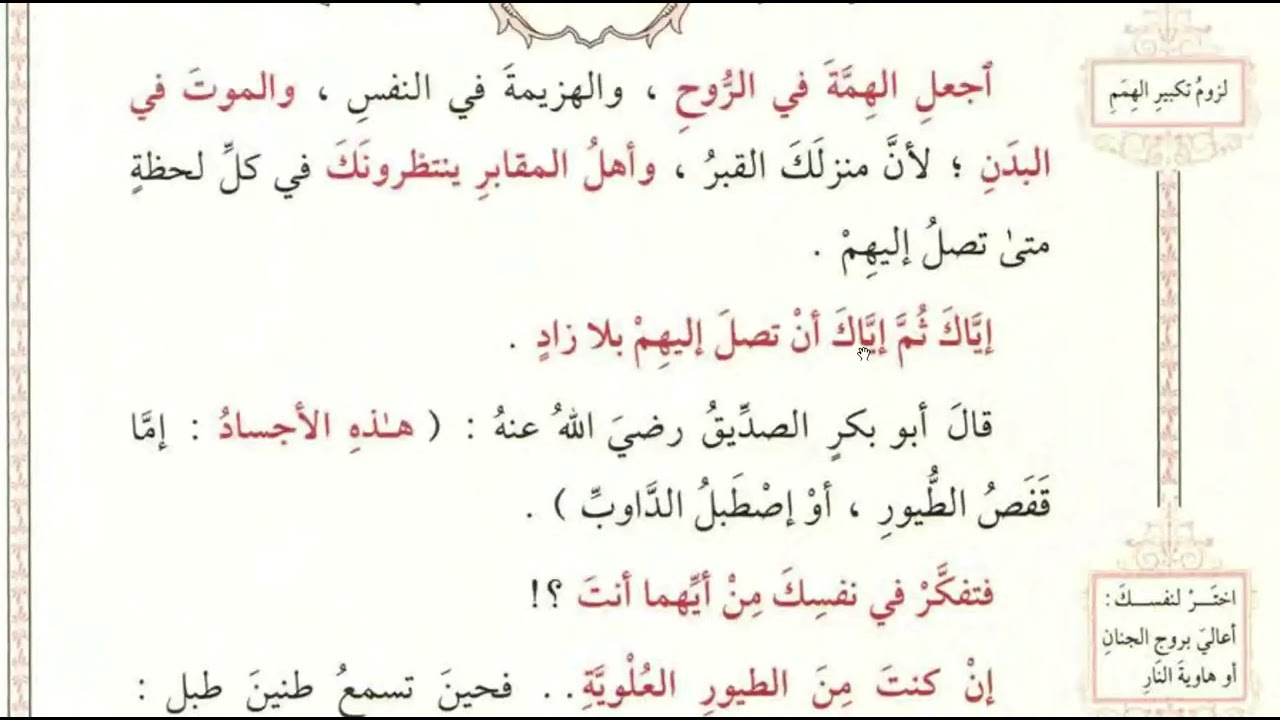 ٱجعلِ الهِمَّةَ في الرُّوحِ ، والهزيمةَ في النفسِ ، والموتَ في
البدَنِ ؛ لأنَّ منزلَكَ القبرُ ، وأهلُ المقابرِ ينتظرونَكَ في كلِّ لحظةٍ
متىٰ تصلُ إليهِمْ .
إيَّاكَ ثُمَّ إيَّاكَ أنْ تصلَ إليهِمْ بلا زادٍ .
قالَ أبو بكرٍ الصدِّيقُ رضيَ اللهُ عنهُ : ( هـٰذهِ الأجسادُ : إمَّا
قَفَصُ الطُّيورِ ، أوْ إصْطَبلُ الدَّاوبِّ ) .
فتفكَّرْ في نفسِكَ مِنْ أيِّهما أنتَ ؟!
إنْ كنتَ مِنَ الطيورِ العُلْويَّةِ.. فحينَ تسمعُ طنينَ طبل :
لزومُ تكبيرِ الهِمَمِ
اختَـرْ لنفسـكَ :
أعاليَ بروجِ الجنانِ
أو هاويةَ النَّارِ